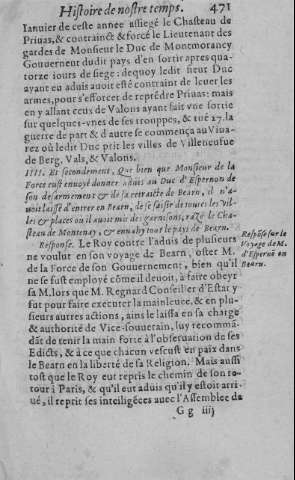 Histoire de nostre temps. 471
Ianuier de ceste annee assiegé le Chasteau de
Priuas, & contrainct & forcé le Lieutenant des
gardes de Monsieur le Duc de Montmorancy
Gouuernent dudit pays d'en sortir apres qua-
torze iours de siege: dequoy ledit sieur Duc
ayant eu aduis auoit esté contraint de leuer les
armes, pour s'efforcer de reprēdre Priuas: mais
en y allant ceux de Valons ayant fait vne sortie
sur quelques-vnes de ses trouppes, & tué 27. la
guerre de part & d'autre se commença au Viua-
rez où ledit Duc prit les villes de Villeneufue
de Berg, Vals, & Valons.
IIII. Et secondement, Que bien que Monsieur de la
Force eust enuoyé donner aduis au Duc d'Espernon de
son desarmement & de sa retraicte de Bearn, il n'a-
uoit laissé d'entrer en Bearn, de se saisir de toutes les vil-
les & places où il auoit mis des garnisons, razé le Cha-
steau de Montenay, & enuahy tout le pays de Bearn.
Response. Le Roy contre l'aduis de plusieurs
ne voulut en son voyage de Bearn, oster M.
de la Force de son Gouuernement, bien qu'il
ne se fust employé cōme il deuoit, à faire obeyr
sa M. lors que M. Regnard Conseiller d'Estat y
fut pour faire executer la mainleuee, & en plu-
sieurs autres actions, ains le laissa en sa charge
& authorité de Vice-souuerain, luy recomma-
dāt de tenir la main forte à l'obseruation de ses
Edicts, & à ce que chacun vescust en paix dans
le Bearn en la liberté de sa Religion. Mais aussi
tost que le Roy eut repris le chemin de son re-
tour à Paris, & qu'il eut aduis qu'il y estoit arri-
ué, il reprit ses intelligēces auec l'Assemblee de
G g iiij
Respōse sur le
Voyage de M.
d'Espernō en
Bearn.